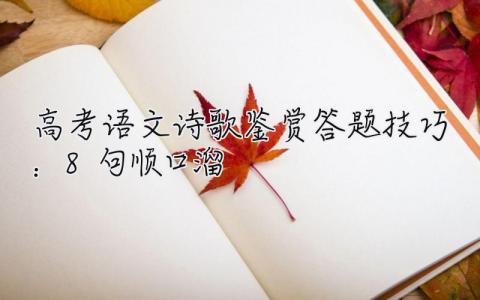 高考语文诗歌鉴赏答题技巧
：8 句顺口溜